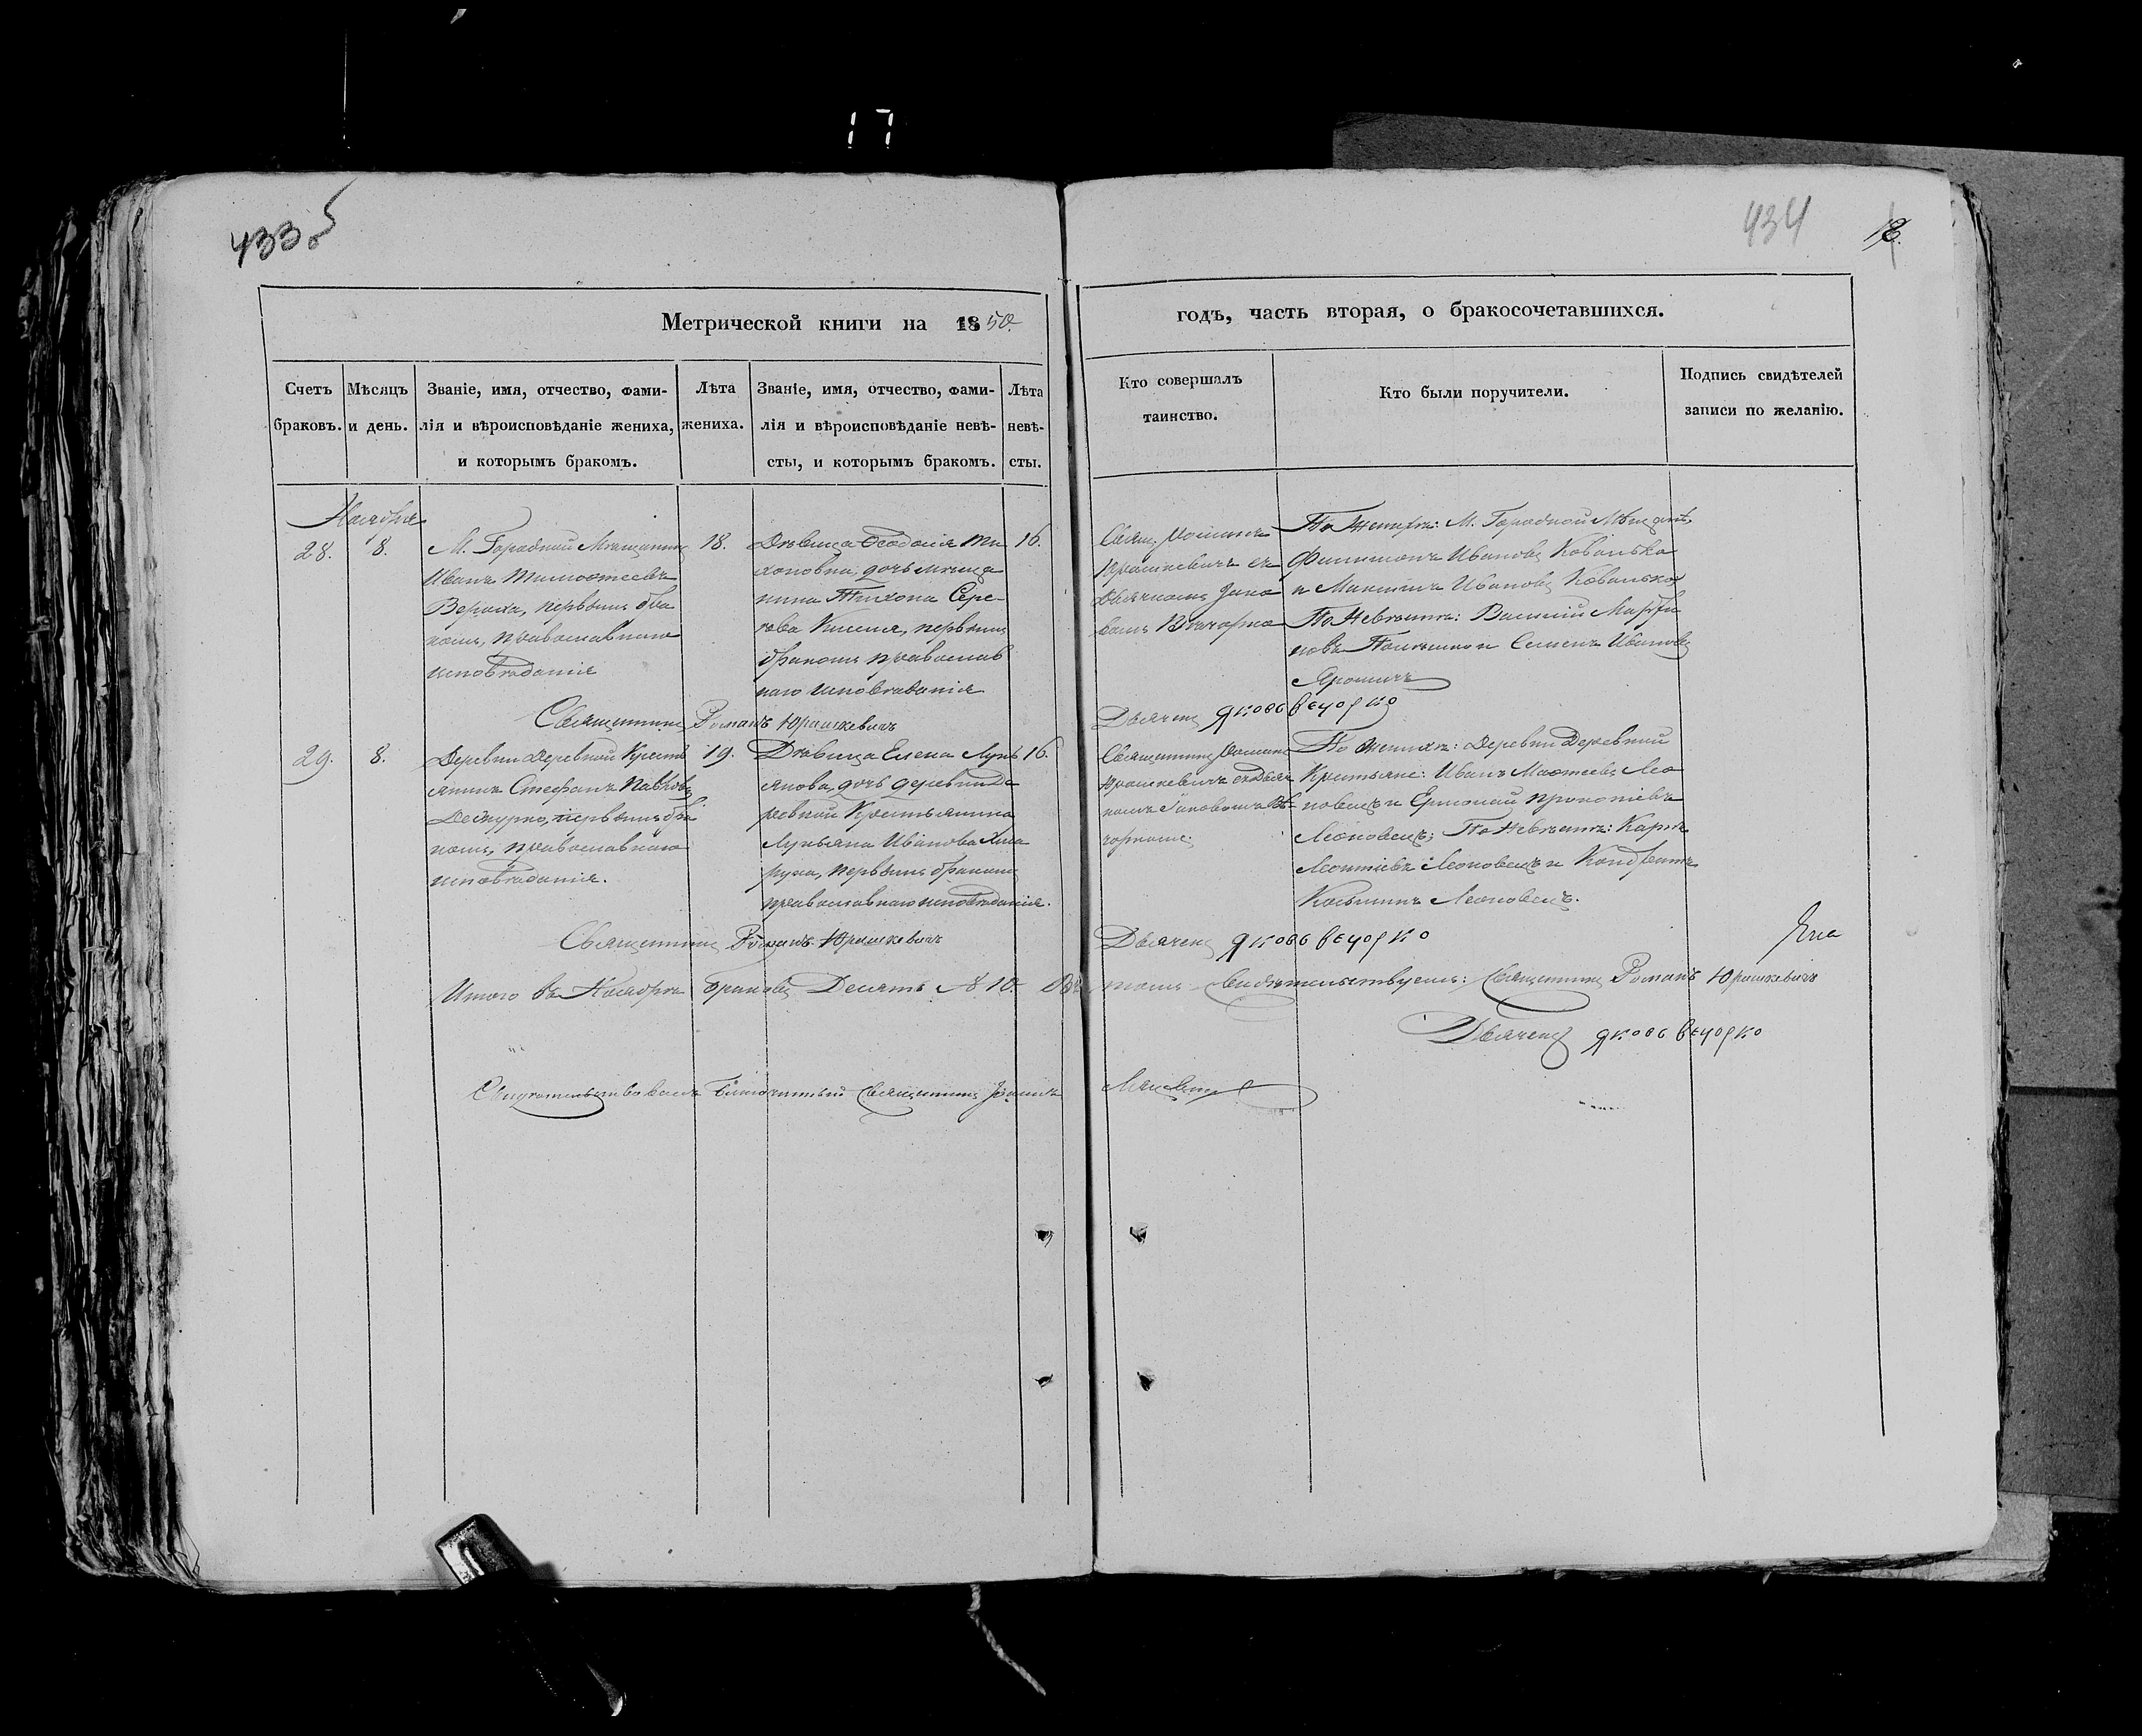 17
433 об
434
18.
Метрической книги на 1850.
годъ, часть вторая, о бракосочетавшихся.
Счетъ браковъ.
Мѣсяцъ и день.
Званіе, имя, отчество, фами-
лія и вѣроисповѣданіе жениха,
и которымъ бракомъ.
Лѣта
жениха.
Званіе, имя, отчество, фами-
лія и вѣроисповѣданіе невѣ-
сты, и которымъ бракомъ.
Лѣта
невѣ-
сты.
Кто совершалъ
таинство.
Кто были поручители.
Подпись свидѣтелей
записи по желанію.
Ноября
28.
8.
М. Городной Мѣщанинъ
Иванъ Тимоѳеевъ
первымъ бра
комъ, православнаго
исповѣданія
18.
Дѣвица Ѳеодосія Ти
хоновна, дочь мѣща
нина Тихона Серге-
ева первымъ
бракомъ православ
наго исповѣданія
16.
Свящ: Романъ
Юрашкевичъ съ
Дьячкомъ Яко
вомъ Вечорко
По Женихѣ: М. Городной Мѣщане,
Филимонъ Ивановъ Ковалько
и Максимъ Ивановъ Ковалько
По Невѣстѣ: Василій
и Семенъ Ивановъ
Ярошичъ
Священникъ Романъ Юрашкевичъ
Дьячекъ Яковъ Вечорко
29.
8.
Деревни Деревной Кресть
янинъ Стефанъ Павловъ
первымъ бра
комъ, православнаго
исповѣданія.
19.
Дѣвица Елена Лукь
янова, дочь деревни Де
ревной Крестьянина
Лукьяна Иванова
первымъ бракомъ
православнаго исповѣданія.
16.
Священникъ Романъ
Юрашкевичъ съ Дьяч
комъ Яковомъ Ве-
чоркомъ.
По Женихѣ: Деревни Деревной
Крестьяне: Иванъ Матѳеевъ Лео
новецъ и Ермолай Прокопіевъ
Леоновецъ; По Невѣстѣ: Карпъ
Леонтіевъ Леоновецъ и
Косьминъ Леоновецъ.
Священникъ Романъ Юрашкевичъ
Дьячекъ Яковъ Вечорко
Итого въ Ноябрѣ браковъ Десять № 10. Въ томъ свидѣтельствуемъ: Священникъ Романъ Юрашкевичъ
Дьячекъ Яковъ Вечорко
Свидѣтельствовалъ Благочинный Священникъ